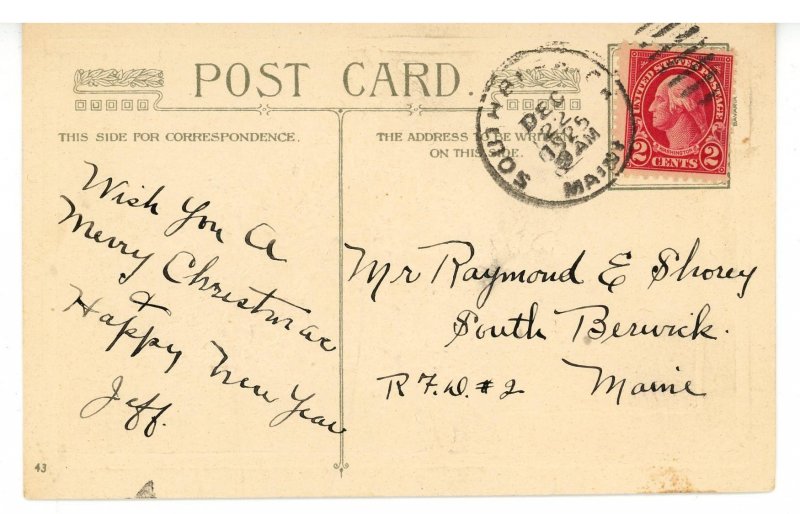 POST CARD.
THIS SIDE FOR CORRESPONDENCE.
THE ADDRESS TO BE WRITTEN
ON THIS SIDE.
Wish You A
Merry Christmas
&
Happy New Year
Jeff.
Mr Raymond E Shorey
South Berwick.
R.F.D. #2 Maine
SOUTH
DEC
22
1925
AM
MAINE
UNITED STATES POSTAGE
WASHINGTON
2 CENTS 2
BAVARIA
43